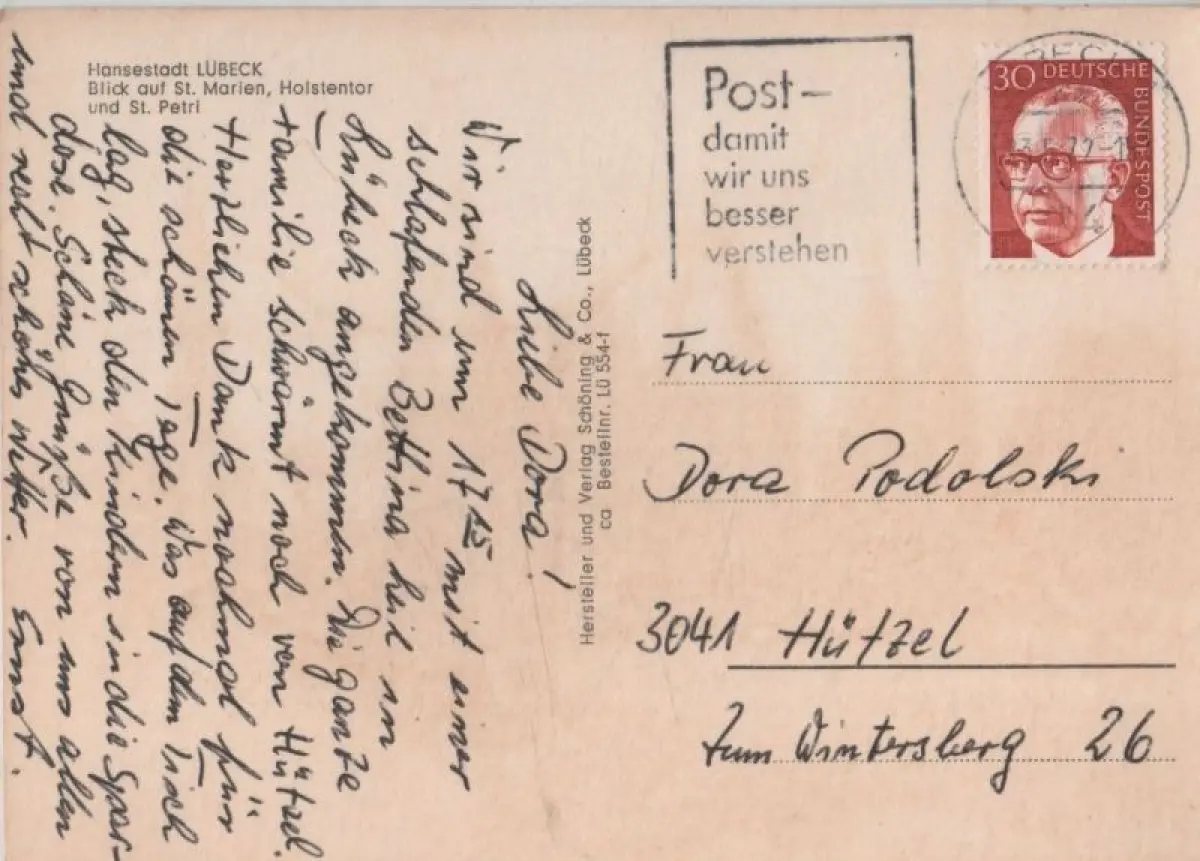 Hansestadt LÜBECK
Blick auf St. Marien, Holstentor
und St. Petri
Liebe Dora!
Wir sind um 17 15 mit einer
schlafenden Bettina heil in
Lübeck angekommen. Die ganze
Familie schwärmt noch von Hützel.
Herzlichen Dank nochmal für
die schönen Tage. Was auf dem Tisch
lag, steck den Kindern in die Spar-
dose. Schöne Grüße von uns allen
und recht schönes Wetter. Ernst.
Hersteller und Verlag Schöning & Co., Lübeck
ca Bestellnr. LÜ 554-f
Post –
damit
wir uns
besser
verstehen
30 DEUTSCHE
BUNDESPOST
Frau
Dora Podolski
3041 Hützel
Zum Wintersberg 26